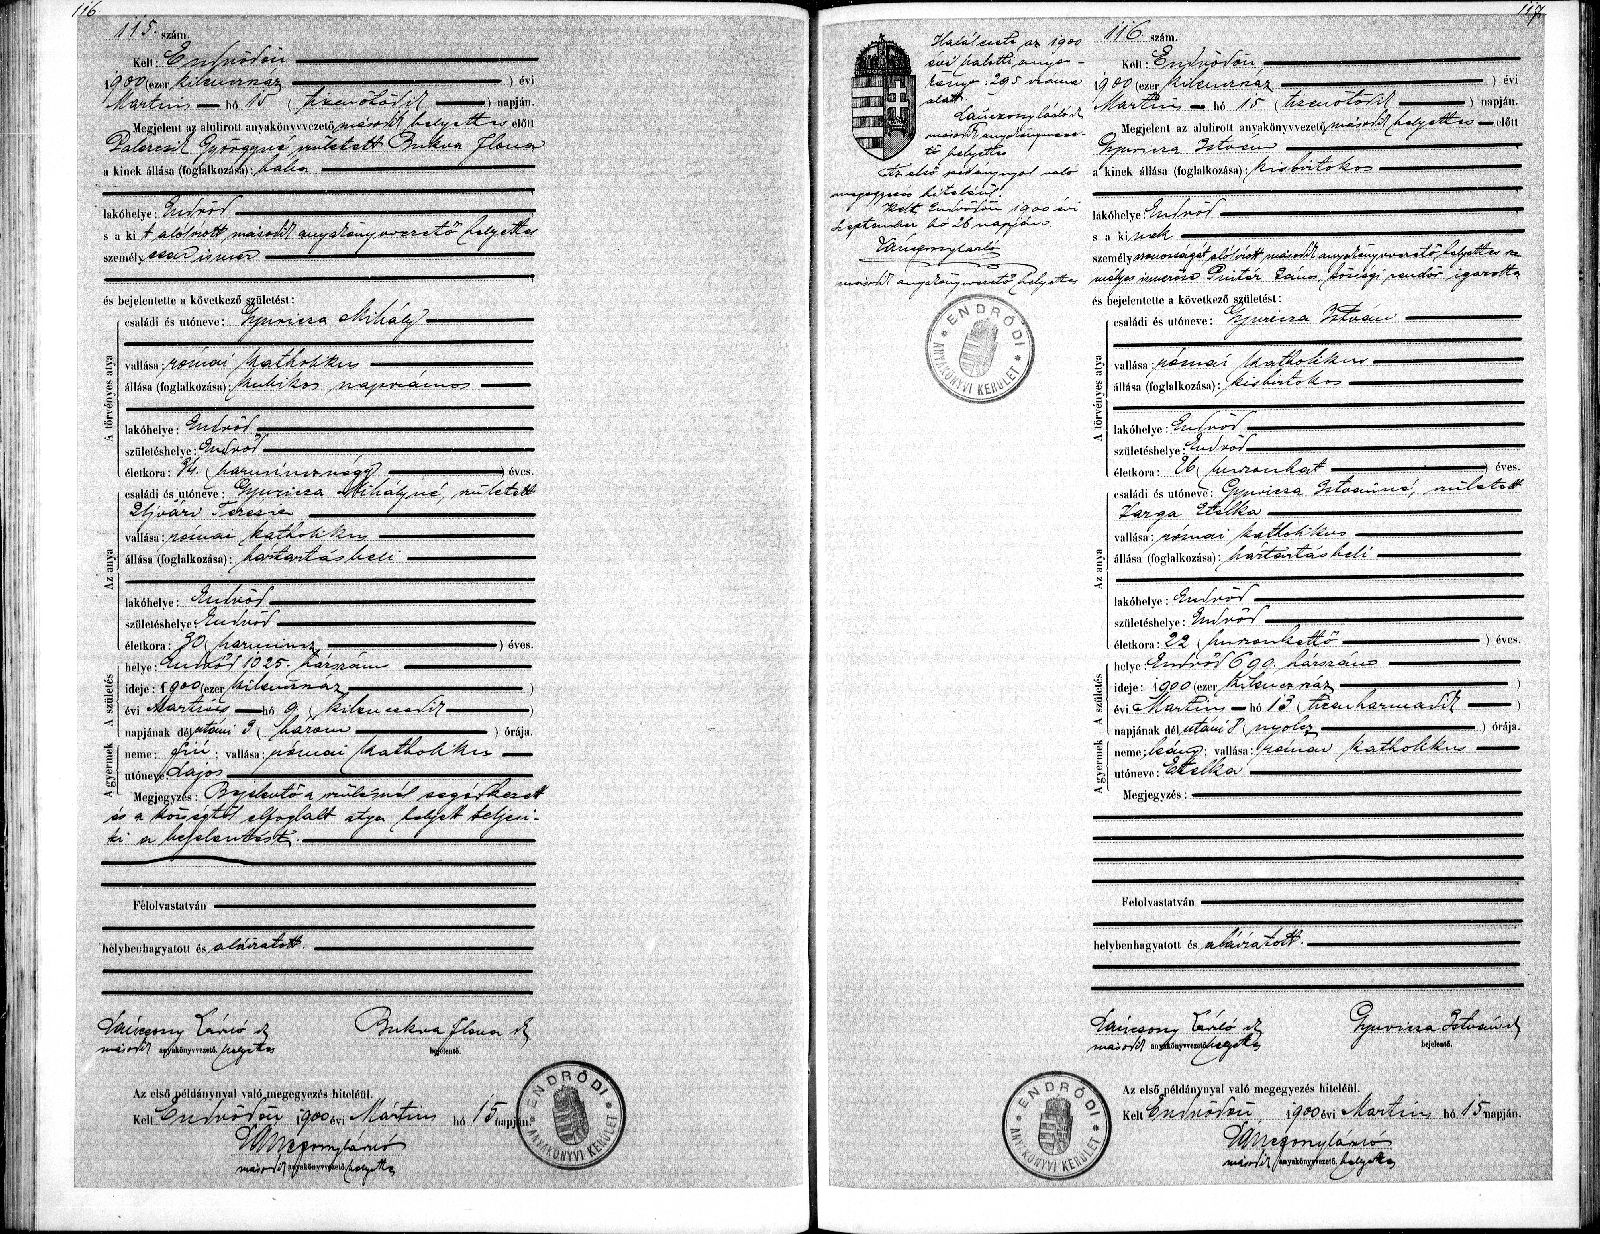 116
115. szám.
Kelt: Endrődön
1900 (ezer kilenczszáz) évi
Martius hó 15 (tizenötödik) napján.
Megjelent az alulirott anyakönyvvezető, második helyettes előtt
Györgyné született Bukva Ilona
a kinek állása (foglalkozása): bába
lakóhelye: Endrőd
s a kit alólirott, második anyakönyvvezető helyettes
személyesen ismer
és bejelentette a következő születést:
A törvényes atya
családi és utóneve: Gyuricza Mihály
vallása: római katholikus
állása (foglalkozása): kubikos napszámos
lakóhelye: Endrőd
születéshelye: Endrőd
életkora: 34. (harmincznégy) éves.
Az anya
családi és utóneve: Gyuricza Mihályné, született
Ujvári Terézia
vallása: római katholikus
állása (foglalkozása): háztartásbeli
lakóhelye: Endrőd
születéshelye Endrőd
életkora: 30 (harmincz) éves.
A születés
helye: Endrőd 1025. házszám
ideje: 1900 (ezer kilenczszáz)
évi Martius hó 9 (kilenczedik)
napjának délutáni 3 (három) órája.
A gyermek
neme: fiú; vallása: római katholikus
utóneve Lajos
Megjegyzés: Bejelentő a szülésnél segédkezett
és a községtől elfoglalt atya helyett teljesi-
ti a bejelentést.
Felolvastatván
helybenhagyatott és aláíratott.
Lánczony László sk Bukva Ilona sk
második anyakönyvvezető helyettes bejelentő.
Az első példánynyal való megegyezés hiteléül.
Kelt Endrődön 1900 évi Mártius hó 15 napján.
Lánczony László
második anyakönyvvezető helyettes
ENDRŐDI ANYAKÖNYVI KERÜLET
117
Halál esete az 1900
évi halotti anya-
könyv 295 száma
alatt.
Lánczony László sk
második anyakönyvveze-
tő helyettes
Az első példánynyal való
megegyezés hiteléül
Kelt Endrődön 1900 évi
September hó 26 napján
Lánczony László
második anyakönyvvezető helyettes
ENDRŐDI ANYAKÖNYVI KERÜLET
116 szám.
Kelt: Endrődön
1900 (ezer kilenczszáz) évi
Martius hó 15 (tizenötödik) napján.
Megjelent az alulirott anyakönyvvezető, második helyettes előtt
Gyuricza István
a kinek állása (foglalkozása): kisbirtokos
lakóhelye: Endrőd
s a kinek
személyazonosságát alólirott második anyakönyvvezető helyettes sze-
mélyes ismerőse Pintér János, községi rendőr igazolta
és bejelentette a következő születést:
A törvényes atya
családi és utóneve: Gyuricza István
vallása: római katholikus
állása (foglalkozása): kisbirtokos
lakóhelye: Endrőd
születéshelye: Endrőd
életkora: 26 (huszonhat) éves.
Az anya
családi és utóneve: Gyuricza Istvánné, született
Varga Etelka
vallása: római katholikus
állása (foglalkozása): háztartásbeli
lakóhelye: Endrőd
születéshelye: Endrőd
életkora: 22 (huszonkettő) éves.
A születés
helye: Endrőd 690. házszám
ideje: 1900 (ezer kilenczszáz)
évi Martius hó 13 (tizenharmadik)
napjának délutáni 8 (nyolcz) órája.
A gyermek
neme: leány; vallása: római katholikus
utóneve: Etelka
Megjegyzés:
Felolvastatván
helybenhagyatott és aláíratott.
Lánczony László sk Gyuricza István sk
második anyakönyvvezető helyettes bejelentő.
Az első példánynyal való megegyezés hiteléül.
Kelt Endrődön 1900 évi Martius hó 15 napján.
Lánczony László
második anyakönyvvezető helyettes
ENDRŐDI ANYAKÖNYVI KERÜLET